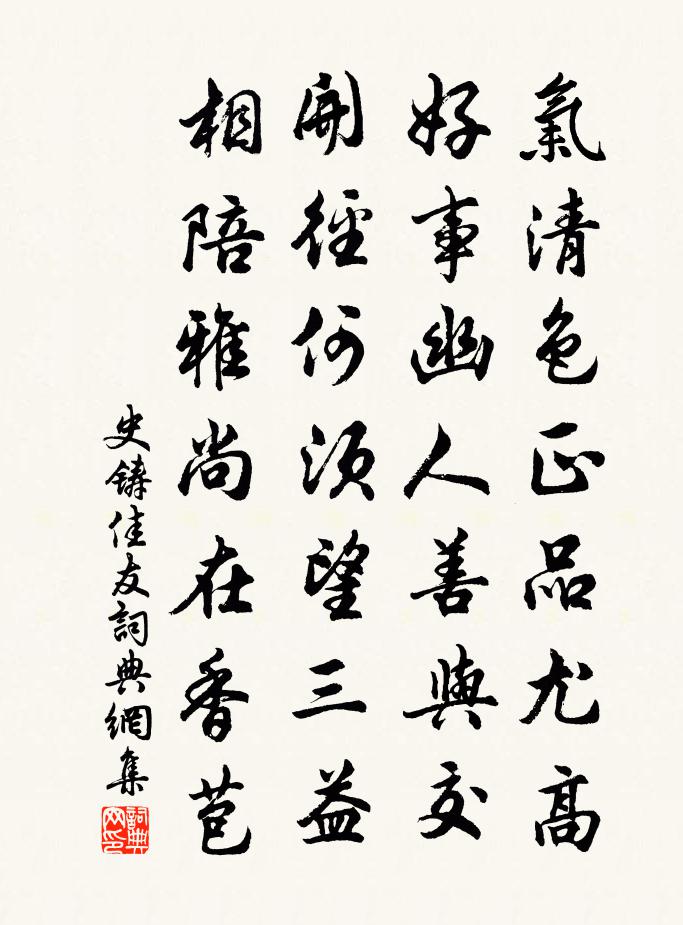 氣清色正品尤高
好事幽人善與交
開徑何須望三益
相陪雅尚在香苞
史鑄佳友詞典網集
詞典網印